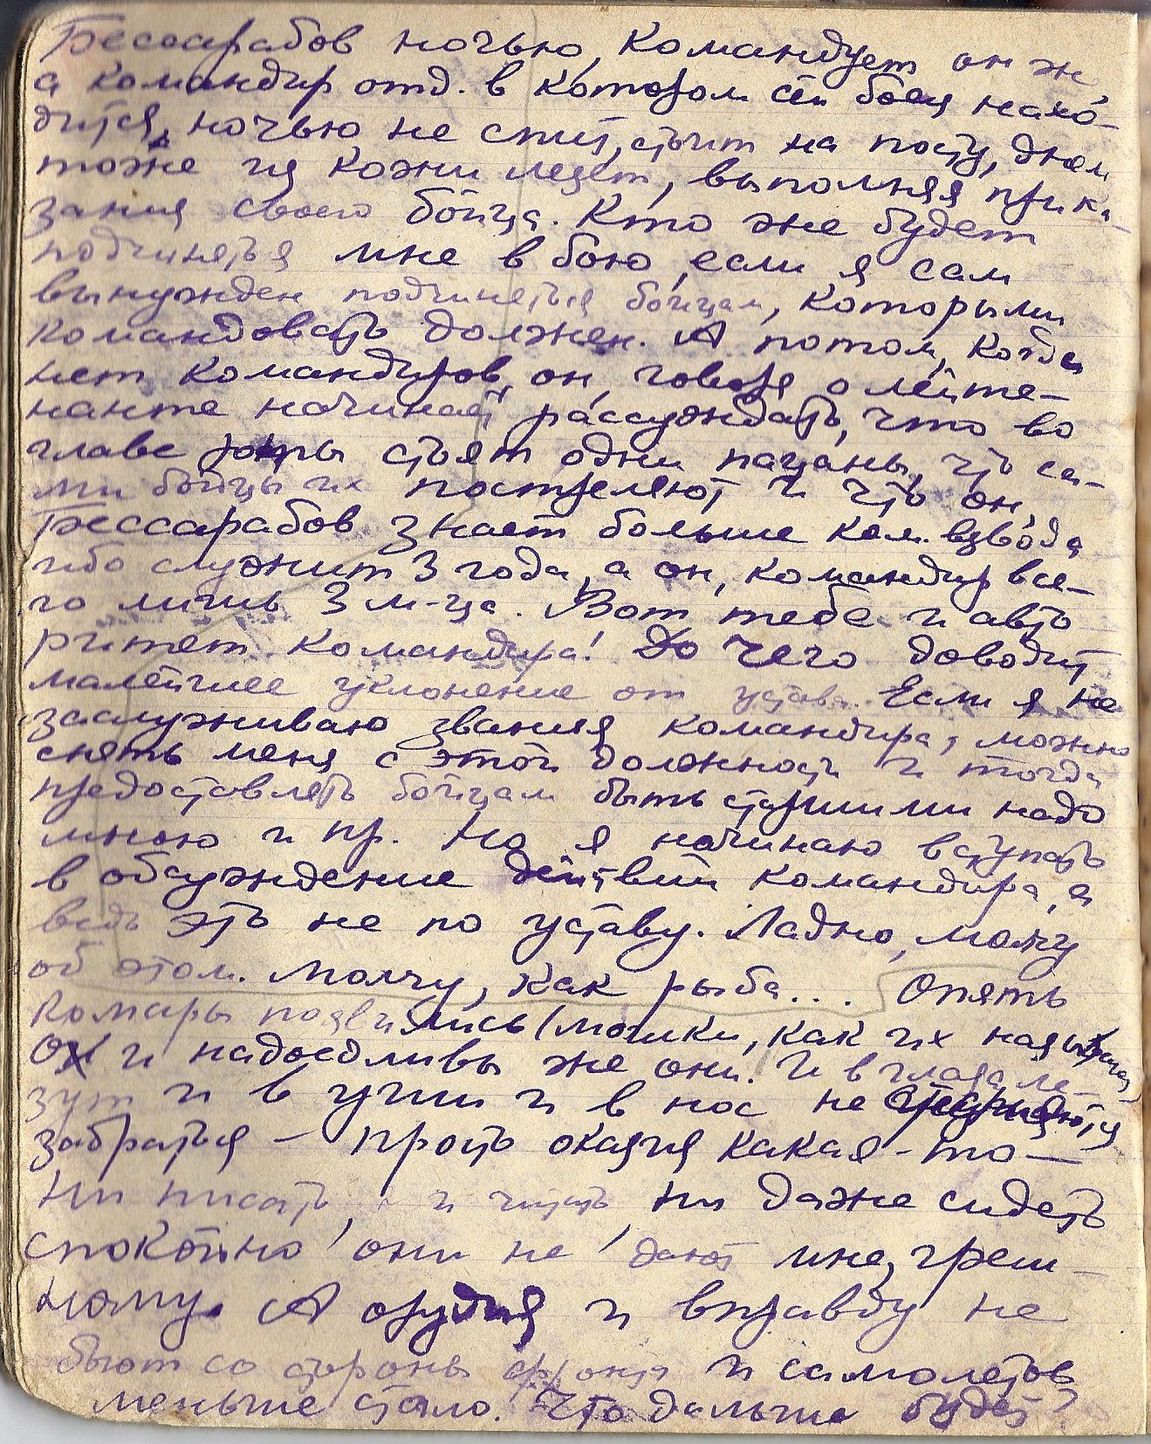 Бессарабов ночью, командует он же
а командир отд. в котором сей боец нахо-
дится, ночью не спит, стоит на посту, днем
тоже из кожи лезет, выполняя прика-
зания своего бойца. Кто же будет
подчиняться мне в бою, если я сам
вынужден подчиняться бойцам, которыми
командовать должен. А потом, когда
нет командиров, он, говоря о лейте-
нанте начинает рассуждать, что во
главе роты стоят одни пацаны, что са-
ми бойцы их постреляют и что он,
Бессарабов знает больше ком. взвода
ибо служит 3 года, а он, командир все-
го лишь 3 м-ца. Вот тебе и авто
ритет командира! До чего доводит
малейшее уклонение от устава. Если я не
заслуживаю звания командира, можно
снять меня с этой должности и тогда
предоставлять бойцам быть старшими надо
мною и пр. Но я начинаю вступать
в обсуждение действий командира, а
ведь это не по уставу. Ладно, молчу
об этом. Молчу, как рыба... Опять
комары появились (мошки, как их называют
Ох и надоедливы же они. И в глаза ле-
зут и в уши и в нос не
забраться – просто оказия какая-то –
Ни писать, и читать, ни даже сидеть
спокойно они не дают мне, греш-
ному. А орудия и вправду не
бьют со стороны фронта и самолетов
меньше стало. Что дальше будет?